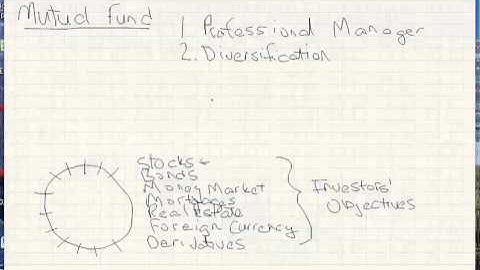 Mutual Fund
1 Professional Manager
2. Diversification
Stocks
Bonds
Money Market
Mortgages
Real Estate
Foreign Currency
Derivatives
Investors'
Objectives